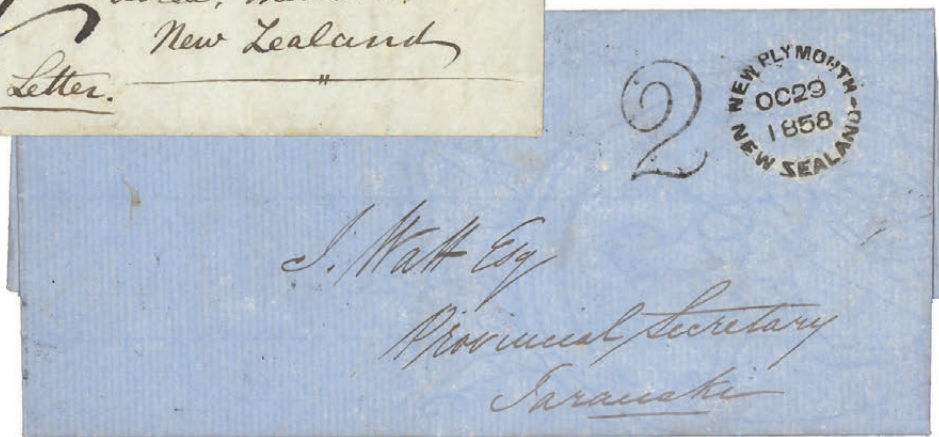 New Zealand
Letter.
2
NEW PLYMOUTH
OC29
1858
NEW ZEALAND
I. Watt Esq
Provincial Secretary
Taranaki